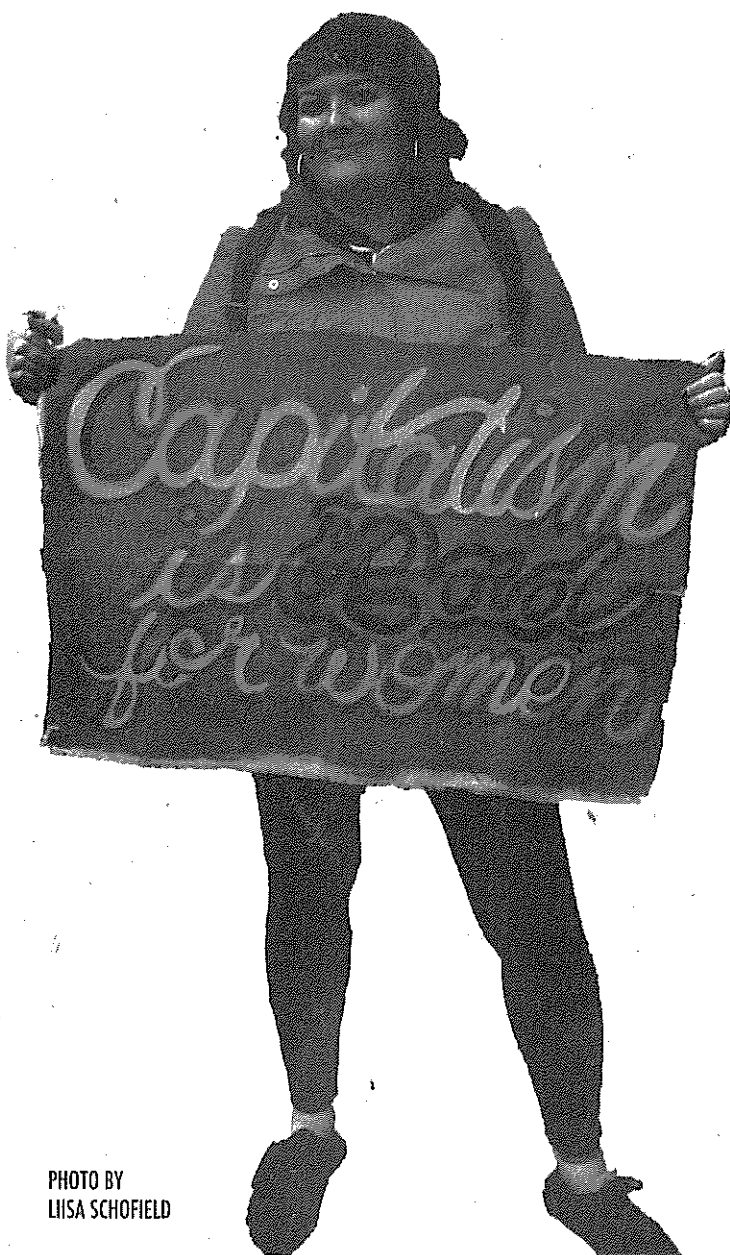 Capitalism
is Bad
for women
PHOTO BY
LIISA SCHOFIELD